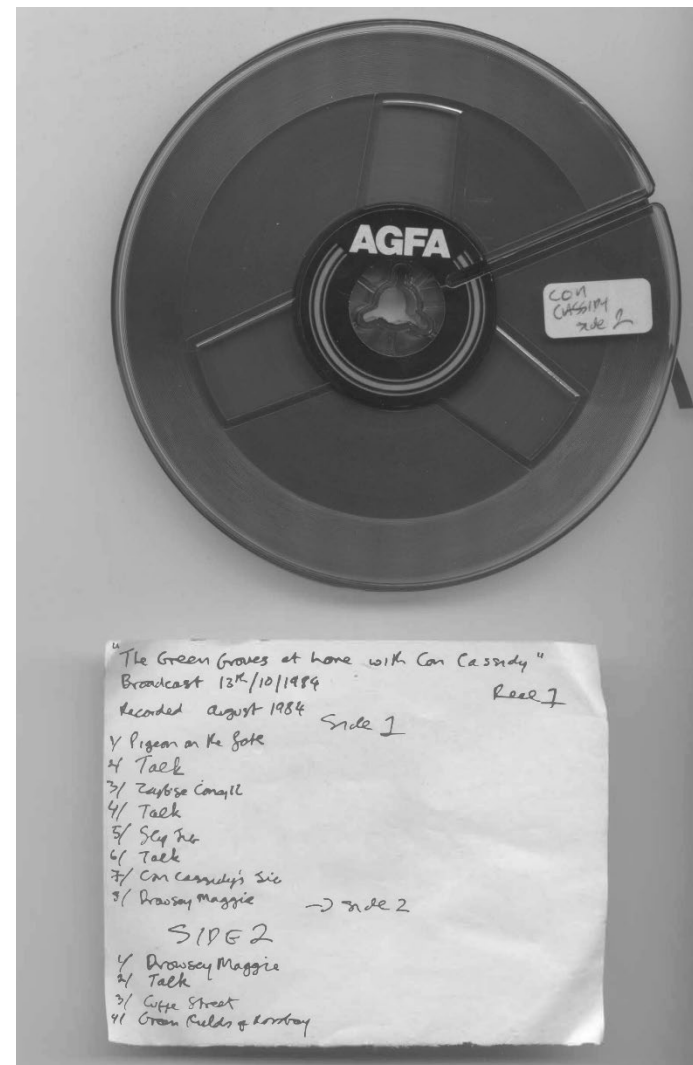 AGFA
CON
CASSIDY
side 2
"The Green Groves at home with Con Cassidy"
Broadcast 13th/10/1984
Reel 1
Recorded august 1984
Side 1
1/ Pigeon on the Gate
2/ Talk
3/
4/ Talk
5/ Slip Jig
6/ Talk
7/ Con Cassidy's Jig
8/ Drowsey Maggie → side 2
SIDE 2
1/ Drowsey Maggie
2/ Talk
3/ Cuffe Street
4/ Green Fields of Rossbeg